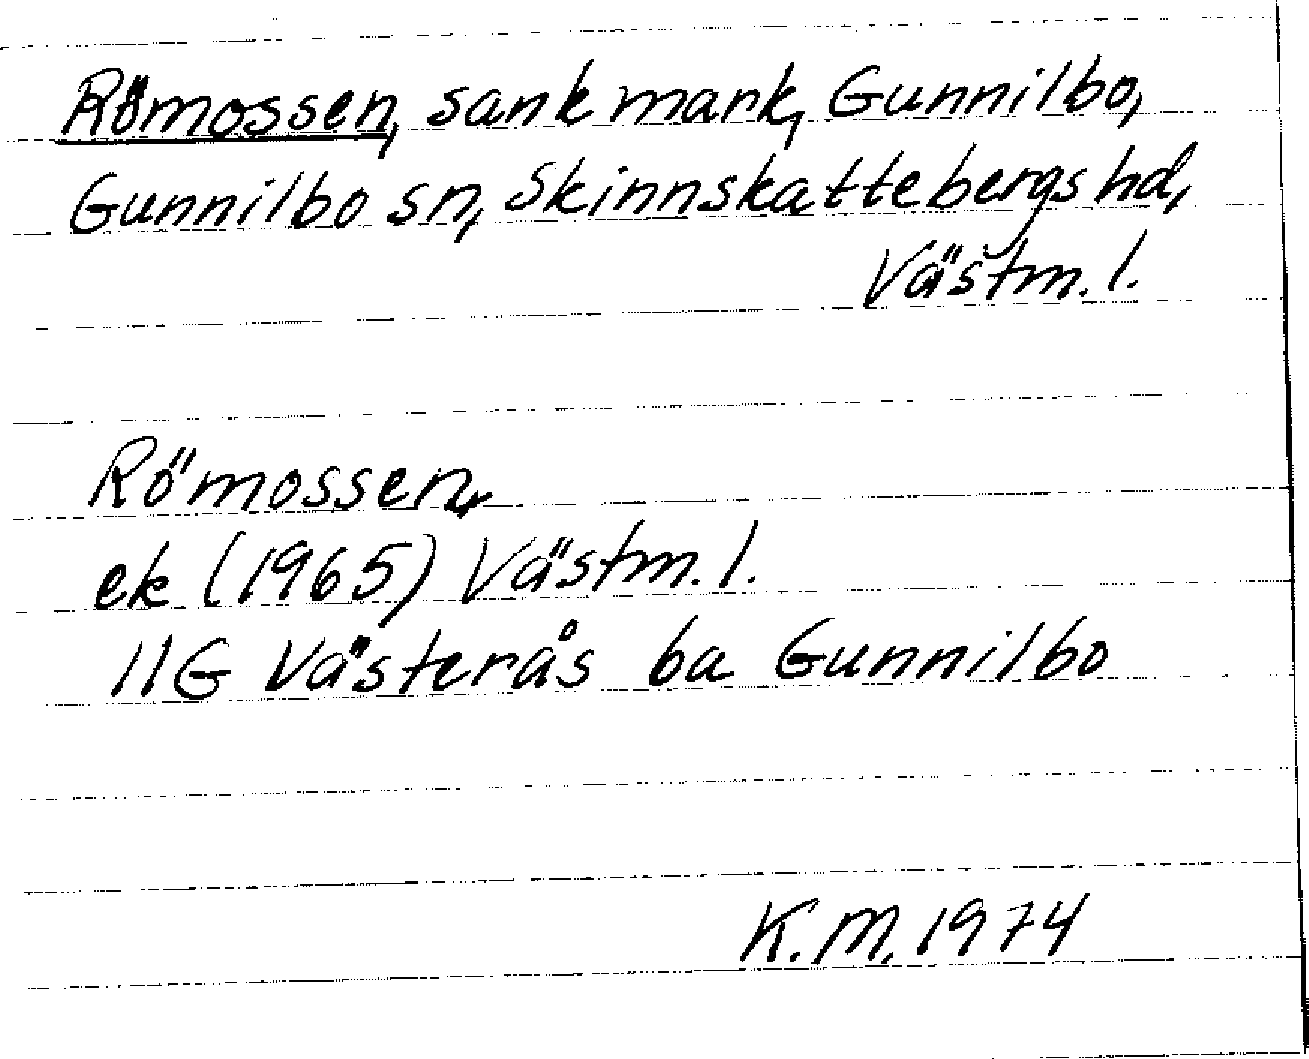 Römossen, sank mark, Gunnilbo,
Gunnilbo sn, Skinnskattebergs hd,
Västm. l.
Römossen,
ek (1965) Västm. l.
11G Västerås ba Gunnilbo
K. M. 1974